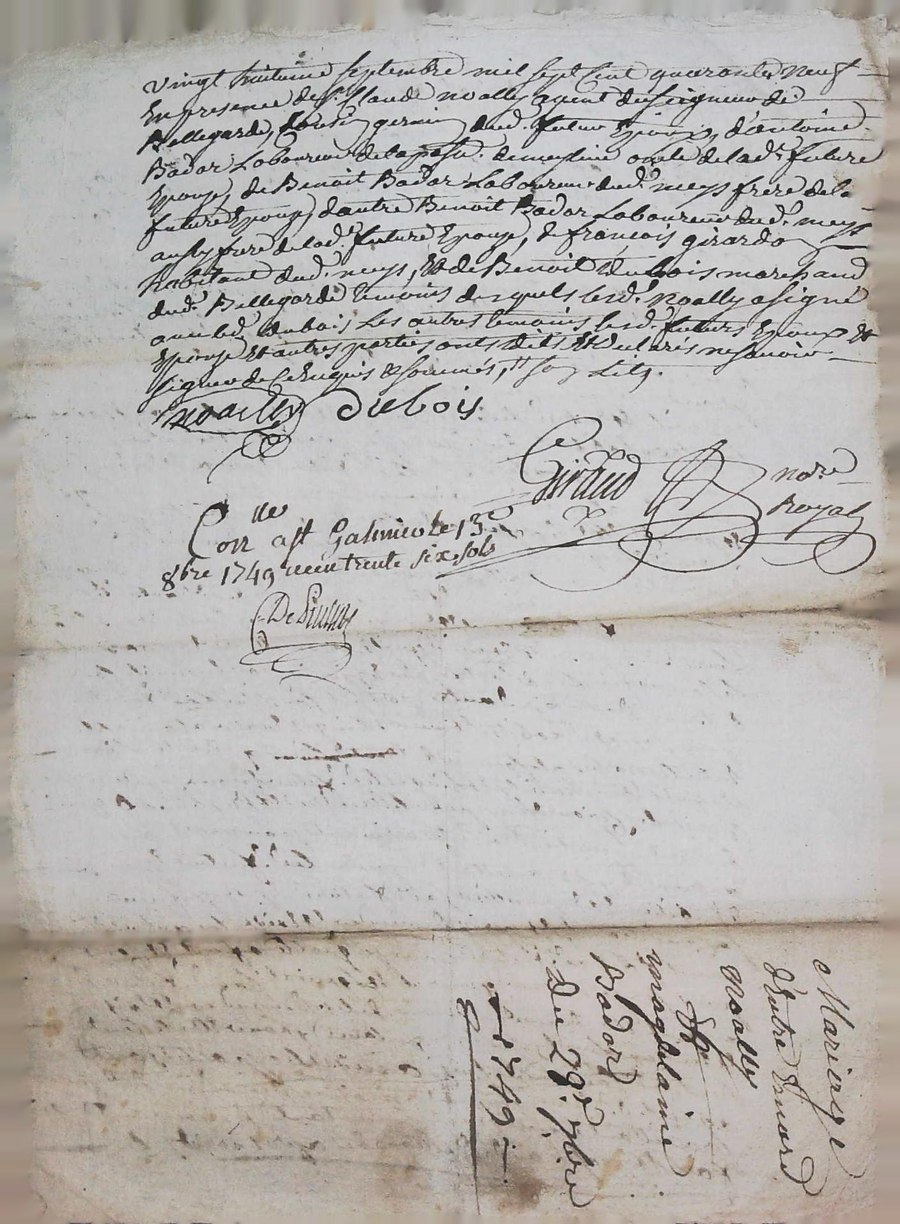 vingt huitieme septembre mil sept cent quarante neuf
En presence de sr. Claude noally agent du seigneur de
Bellegarde, Cousin germain dud. futur Epoux, d'antoine
Bador Laboureur de la pars. de meyline oncle de lad. future
Epouse, de Benoit Bador Laboureur dud. meys frere de la
future Epouse, d'autre Benoit Bador Laboureur dud. meys
aussy frere de lad. future Epouse, de francois girardon
habitant dud. meys, Et de Benoit dubois marchand
dud. Bellegarde temoins desquels led. noally a signé
avec led. dubois Les autres temoins lesd. futurs Epoux et
Epouse Et autres parties onts dit Et declarés ne savoir
signer de ce Enquis & sommés,
noally dubois
Giraud nore
Royal
Conlle a st Galmier le 13e
8bre 1749 reçu trente six sols
Mariage
d'Entre Benoit
Noally
Et
magdelaine
Bador
Du 29e. 7bre
1749